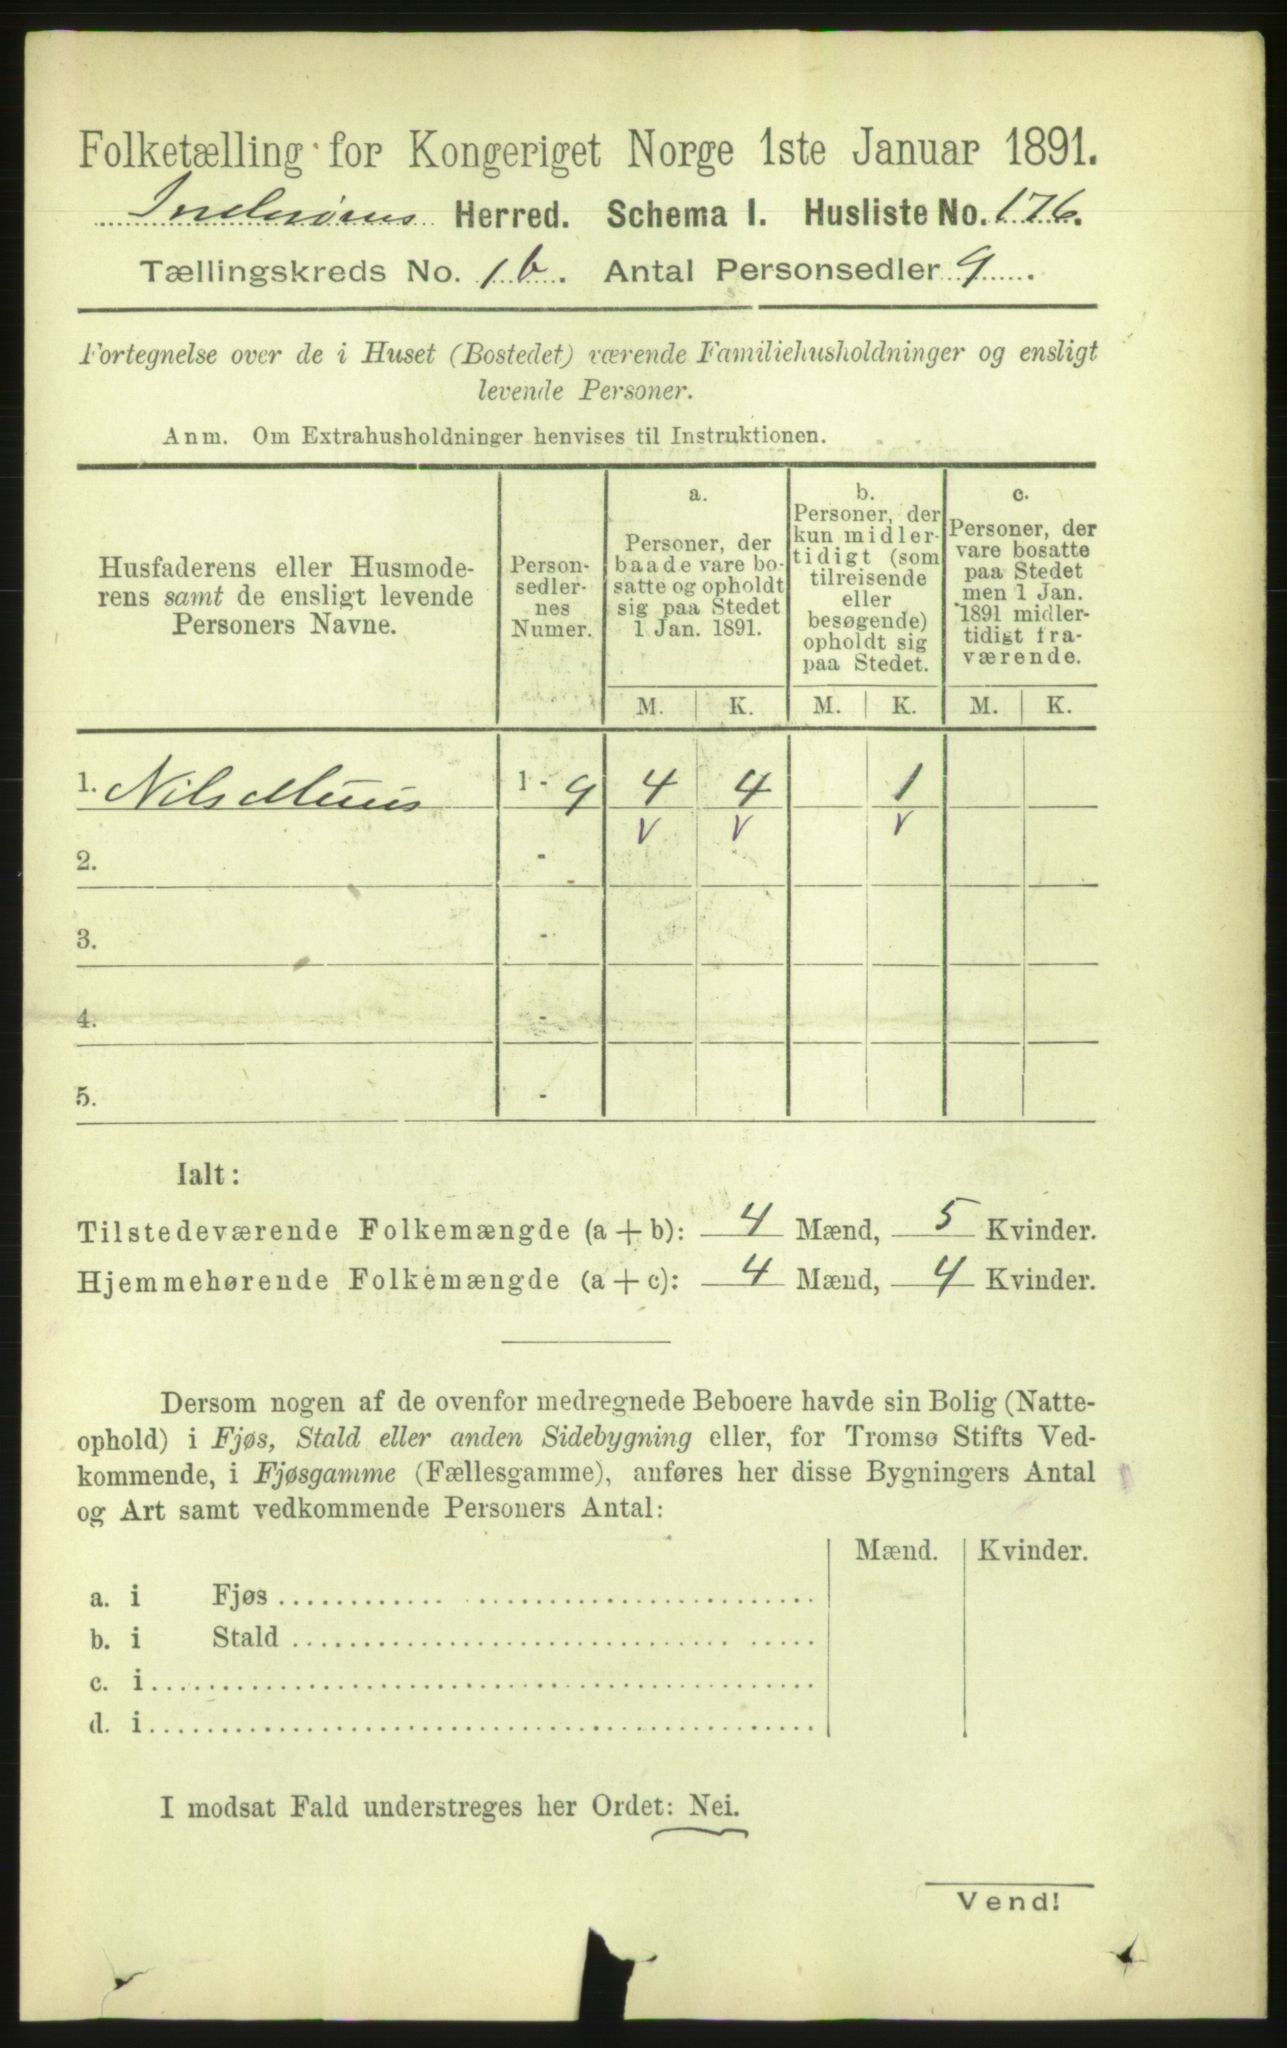 Folketælling for Kongeriget Norge 1ste Januar 1891.
Inderøens Herred. Schema I. Husliste No. 176.
Tællingskreds No. 1 b. Antal Personsedler 9.
Fortegnelse over de i Huset (Bostedet) værende Familiehusholdninger og ensligt
levende Personer.
Anm. Om Extrahusholdninger henvises til Instruktionen.
Husfaderens eller Husmode-
rens samt de ensligt levende
Personers Navne.
Person-
sedler-
nes
Numer.
a.
Personer, der
baade vare bo-
satte og opholdt
sig paa Stedet
1 Jan. 1891.
b.
Personer, der
kun midler-
tidigt (som
tilreisende
eller
besøgende)
opholdt sig
paa Stedet.
c.
Personer, der
vare bosatte
paa Stedet
men 1 Jan.
1891 midler-
tidigt fra-
værende.
M. K. M. K. M. K.
1. Nils Muus 1 - 9 4 4 1
v v v
2. -
3. -
4. -
5. -
Ialt:
Tilstedeværende Folkemængde (a + b): 4 Mænd, 5 Kvinder.
Hjemmehørende Folkemængde (a + c): 4 Mænd, 4 Kvinder.
Dersom nogen af de ovenfor medregnede Beboere havde sin Bolig (Natte-
ophold) i Fjøs, Stald eller anden Sidebygning eller, for Tromsø Stifts Ved-
kommende, i Fjøsgamme (Fællesgamme), anføres her disse Bygningers Antal
og Art samt vedkommende Personers Antal:
Mænd. Kvinder.
a. i Fjøs
b. i Stald
c. i
d. i
I modsat Fald understreges her Ordet: Nei.
Vend!